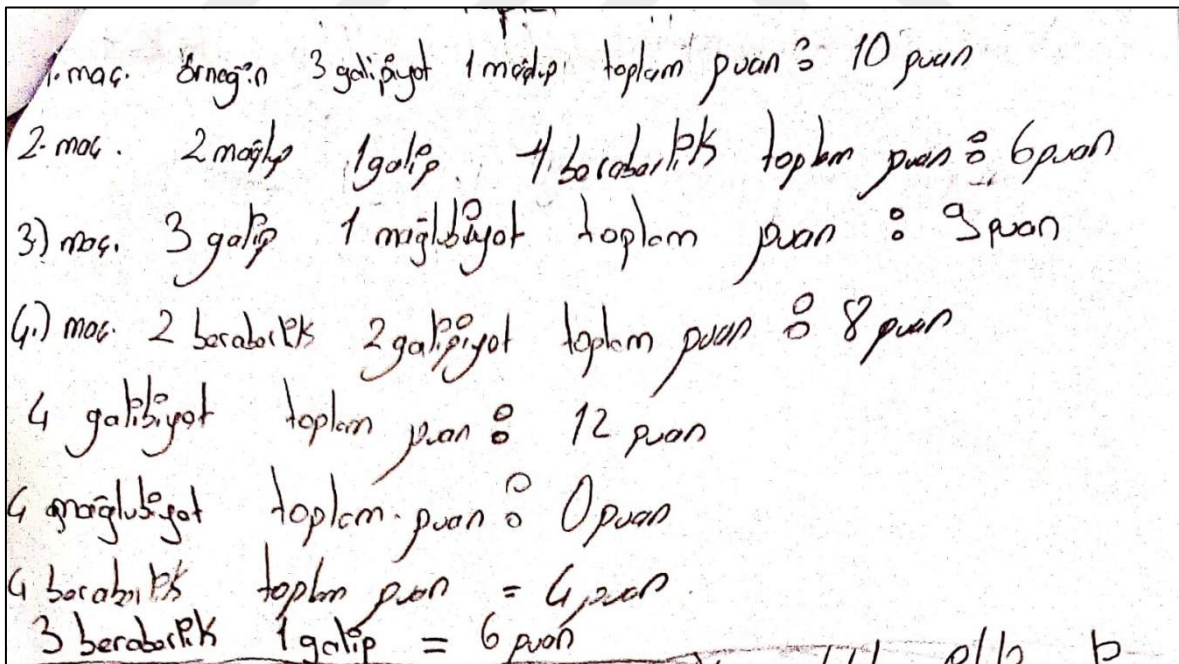 1. maç. örneğin 3 galipiyet 1 mağlip toplam puan : 10 puan
2. maç. 2 mağlp 1 galip. 1 beraberlik toplam puan : 6 puan
3.) maç. 3 galip 1 mağlubiyet toplam puan : 9 puan
4.) maç. 2 beraberlik 2 galipiyet toplam puan : 8 puan
4 galibiyet toplam puan : 12 puan
4 mağlubiyet toplam puan : 0 puan
4 beraberlik toplam puan = 4 puan
3 beraberlik 1 galip = 6 puan